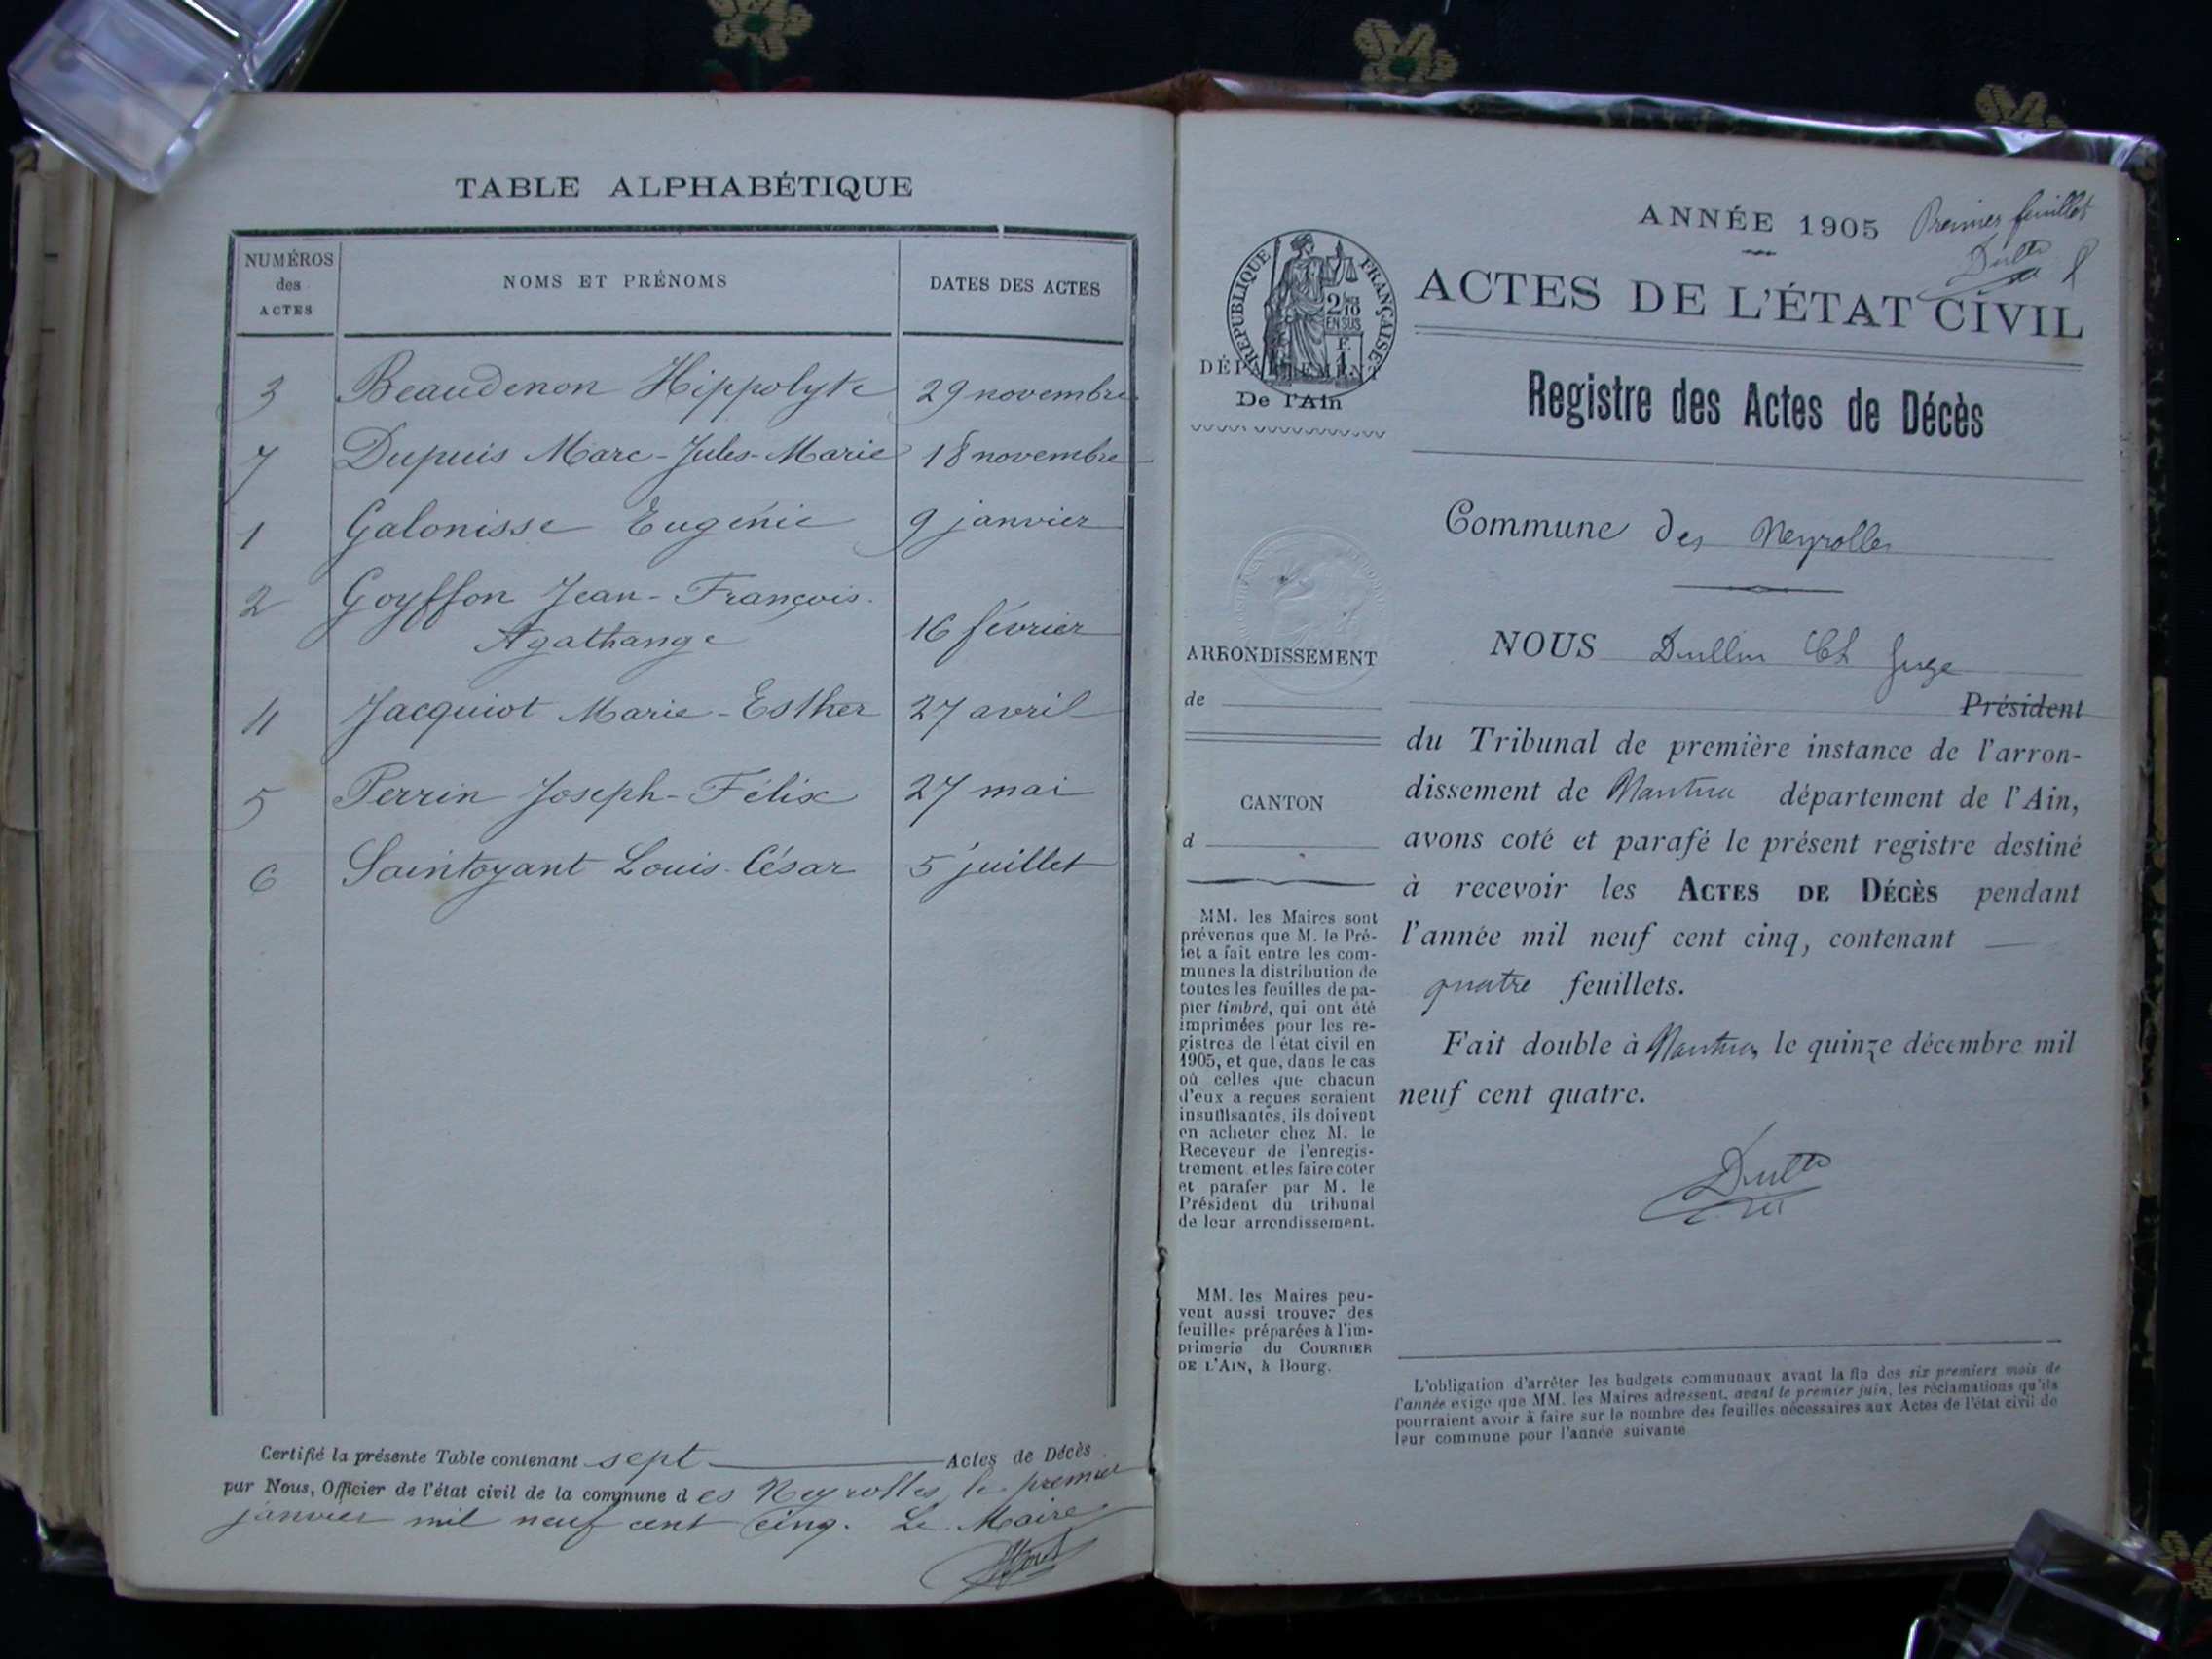 TABLE ALPHABÉTIQUE
NUMÉROS
des
ACTES
NOMS ET PRÉNOMS
DATES DES ACTES
3 Beaudenon Hippolyte 29 novembre
7 Dupuis Marc-Jules-Marie 18 novembre
1 Galonisse Eugénie 9 janvier
2 Goyffon Jean-François-
Agathange 16 février
4 Jacquiot Marie-Esther 27 avril
5 Perrin Joseph-Félix 27 mai
6 Saintoyant Louis-César 5 juillet
Certifié la présente Table contenant sept Actes de Décès
par Nous, Officier de l'état civil de la commune des Neyrolles, le premier
janvier mil neuf cent cinq. Le Maire
ANNÉE 1905 Premier feuillet
ACTES DE L'ÉTAT CIVIL
RÉPUBLIQUE FRANÇAISE
2/10
EN SUS
F.
1
DÉPARTEMENT
De l'Ain
Registre des Actes de Décès
Commune des Neyrolles
NOUS Dullin Juge
Président
du Tribunal de première instance de l'arron-
dissement de Nantua département de l'Ain,
avons coté et parafé le présent registre destiné
à recevoir les ACTES DE DÉCÈS pendant
l'année mil neuf cent cinq, contenant
quatre feuillets.
Fait double à Nantua, le quinze décembre mil
neuf cent quatre.
ARRONDISSEMENT
de
CANTON
d
MM. les Maires sont
prévenus que M. le Pré-
fet a fait entre les com-
munes la distribution de
toutes les feuilles de pa-
pier timbré, qui ont été
imprimées pour les re-
gistres de l'état civil en
1905, et que, dans le cas
où celles que chacun
d'eux a reçues seraient
insuffisantes, ils doivent
en acheter chez M. le
Receveur de l'enregis-
trement et les faire coter
et parafer par M. le
Président du tribunal
de leur arrondissement.
MM. les Maires peu-
vent aussi trouver des
feuilles préparées à l'im-
primerie du COURRIER
DE L'AIN, à Bourg.
L'obligation d'arrêter les budgets communaux avant la fin des six premiers mois de
l'année exige que MM. les Maires adressent, avant le premier juin, les réclamations qu'ils
pourraient avoir à faire sur le nombre des feuilles nécessaires aux Actes de l'état civil de
leur commune pour l'année suivante